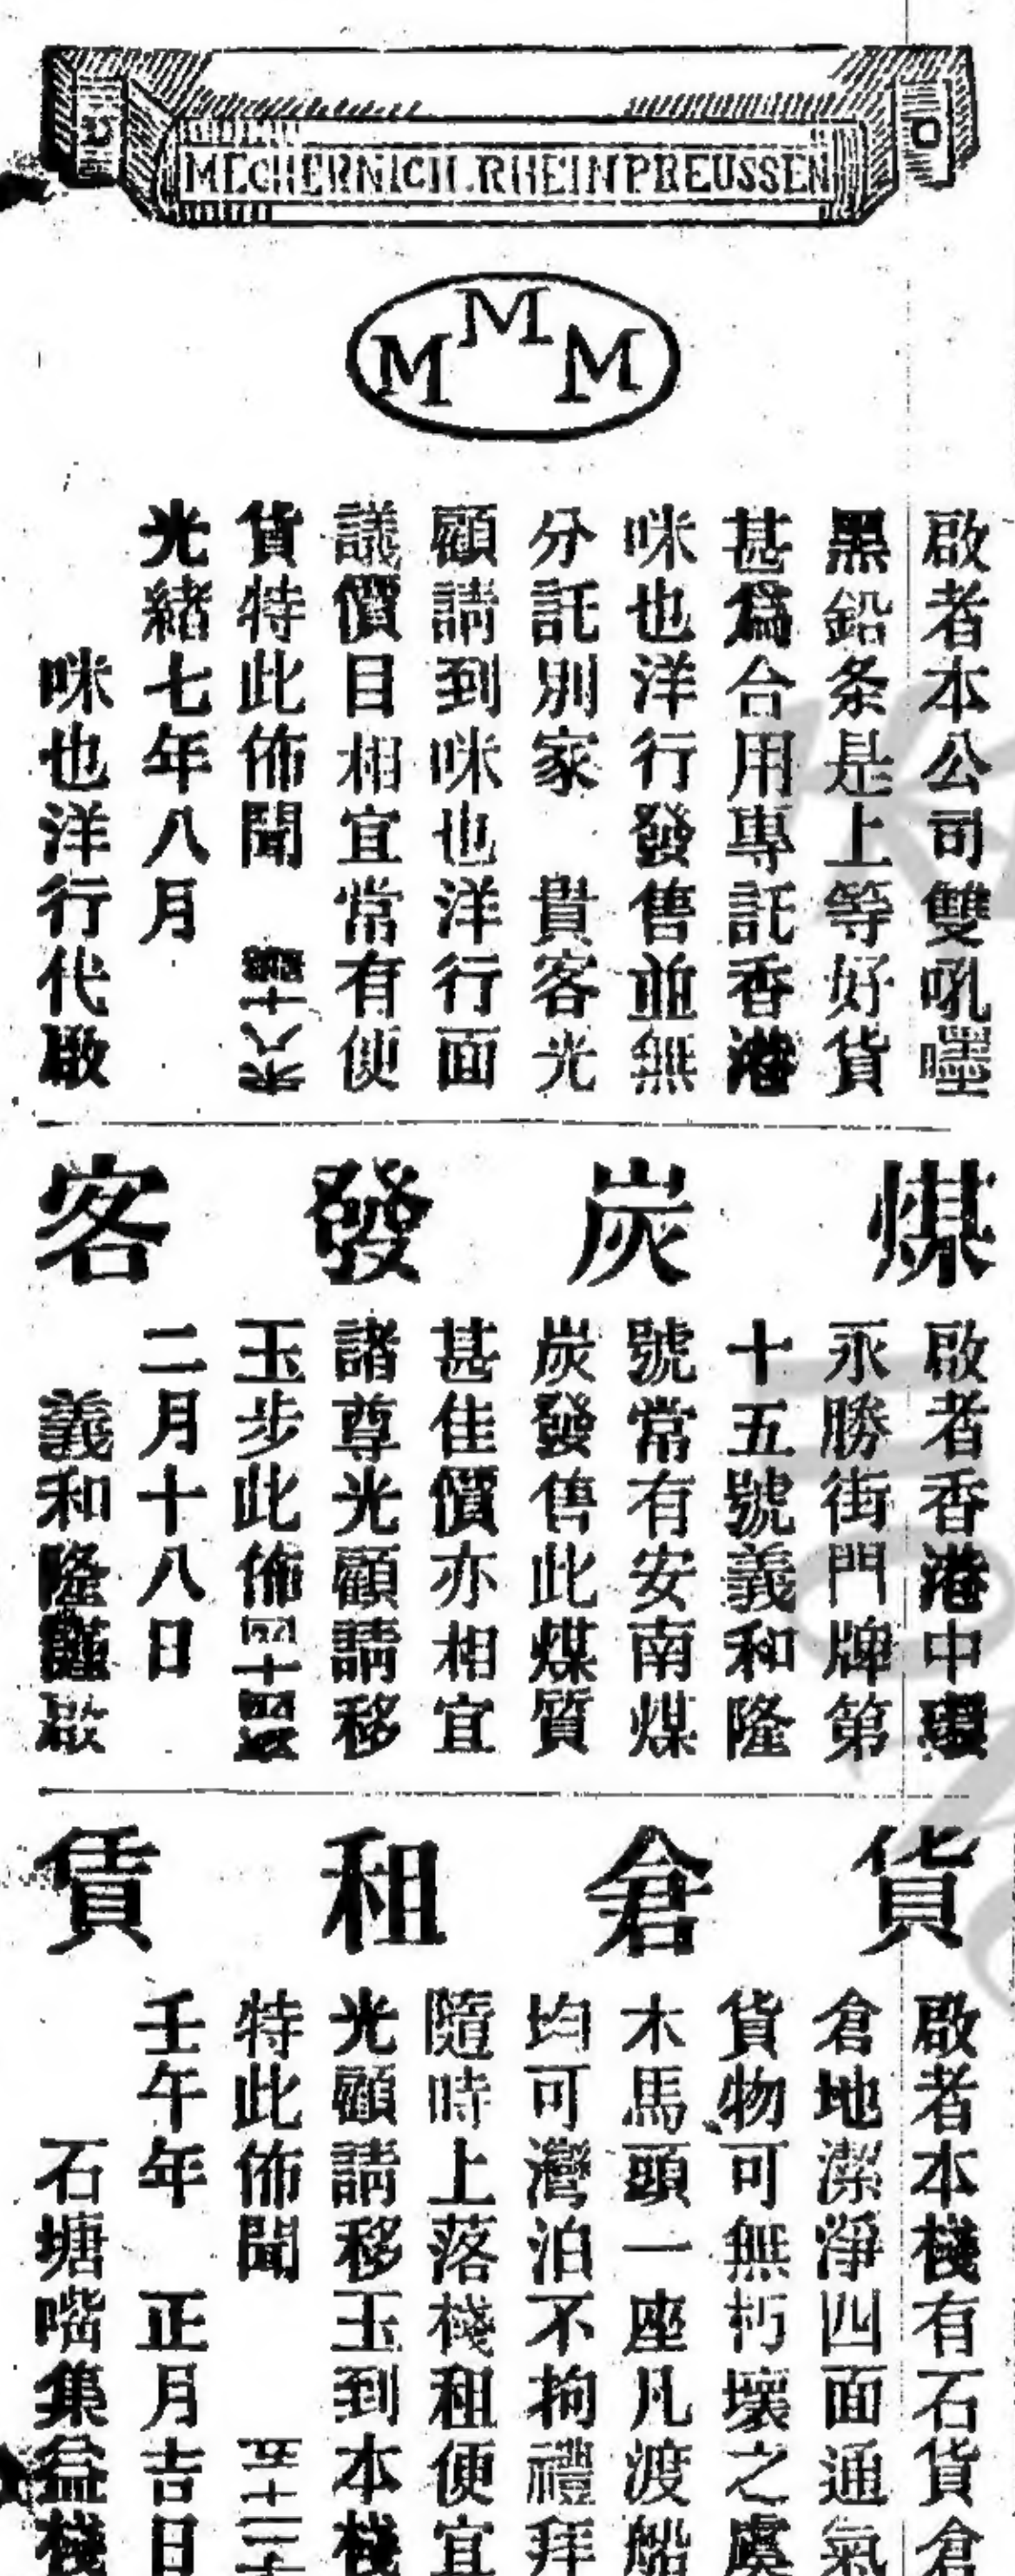 MECHERNICH.RHEINPREUSSEN
M M M
啟者本公司雙吼嚜
黑鉛条是上等好貨
甚為合用專託香港
咪也洋行發售並無
分託別家　貴客光
顧請到咪也洋行面
議價目相宜常有便
貨特此佈聞
光緒七年八月
咪也洋行代啟
煤炭發客
啟者香港中環
永勝街門牌第
十五號義和隆
號常有安南煤
炭發售此煤質
甚佳價亦相宜
諸尊光顧請移
玉步此佈
二月十八日
義和隆謹啟
貨倉租賃
啟者本棧有石貨倉
倉地潔淨四面通氣
貨物可無朽壞之虞
木馬頭一座凡渡船
均可灣泊不拘禮拜
隨時上落棧租便宜
光顧請移玉到本棧
特此佈聞
壬午年　正月吉日
石塘嘴集益棧